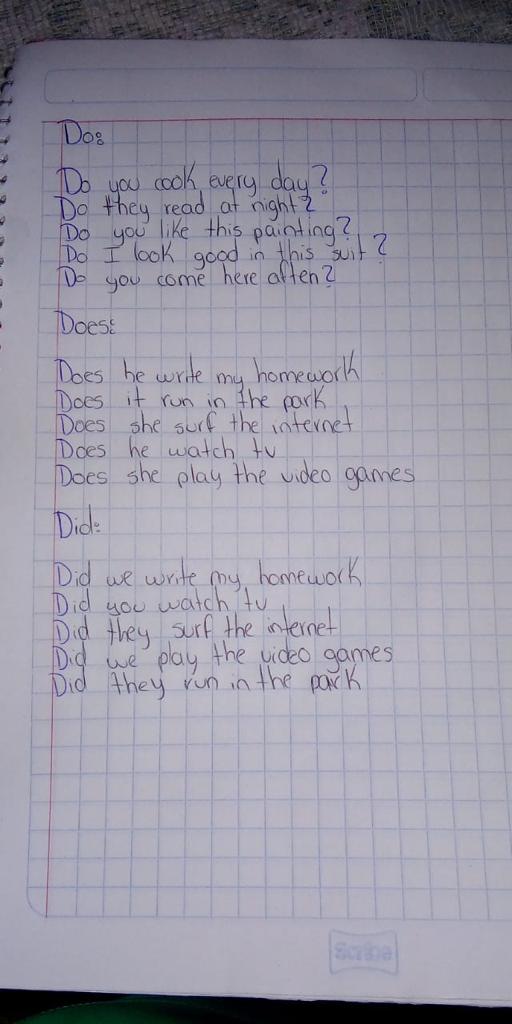 Do:
Do you cook every day?
Do they read at night?
Do you like this painting?
Do I look good in this suit?
Do you come here often?
Does:
Does he write my homework
Does it run in the park
Does she surf the internet
Does he watch tv
Does she play the video games
Did:
Did we write my homework
Did you watch tv
Did they surf the internet
Did we play the video games
Did they run in the park
Scribe